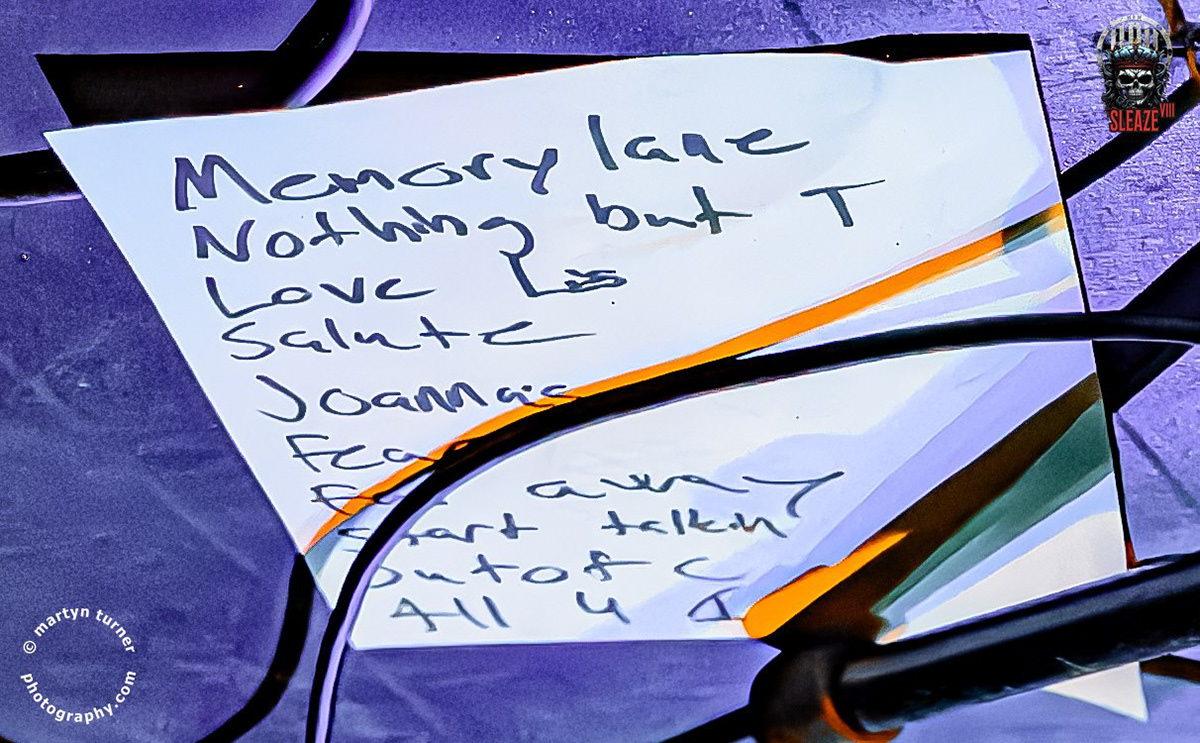 Memory lane
Nothing but T
Love Lis
Salute
Joanna's
Fea
away
Start talkin
Out of C
All 4 I
© martyn turner
photography.com
HRH
SLEAZE VIII